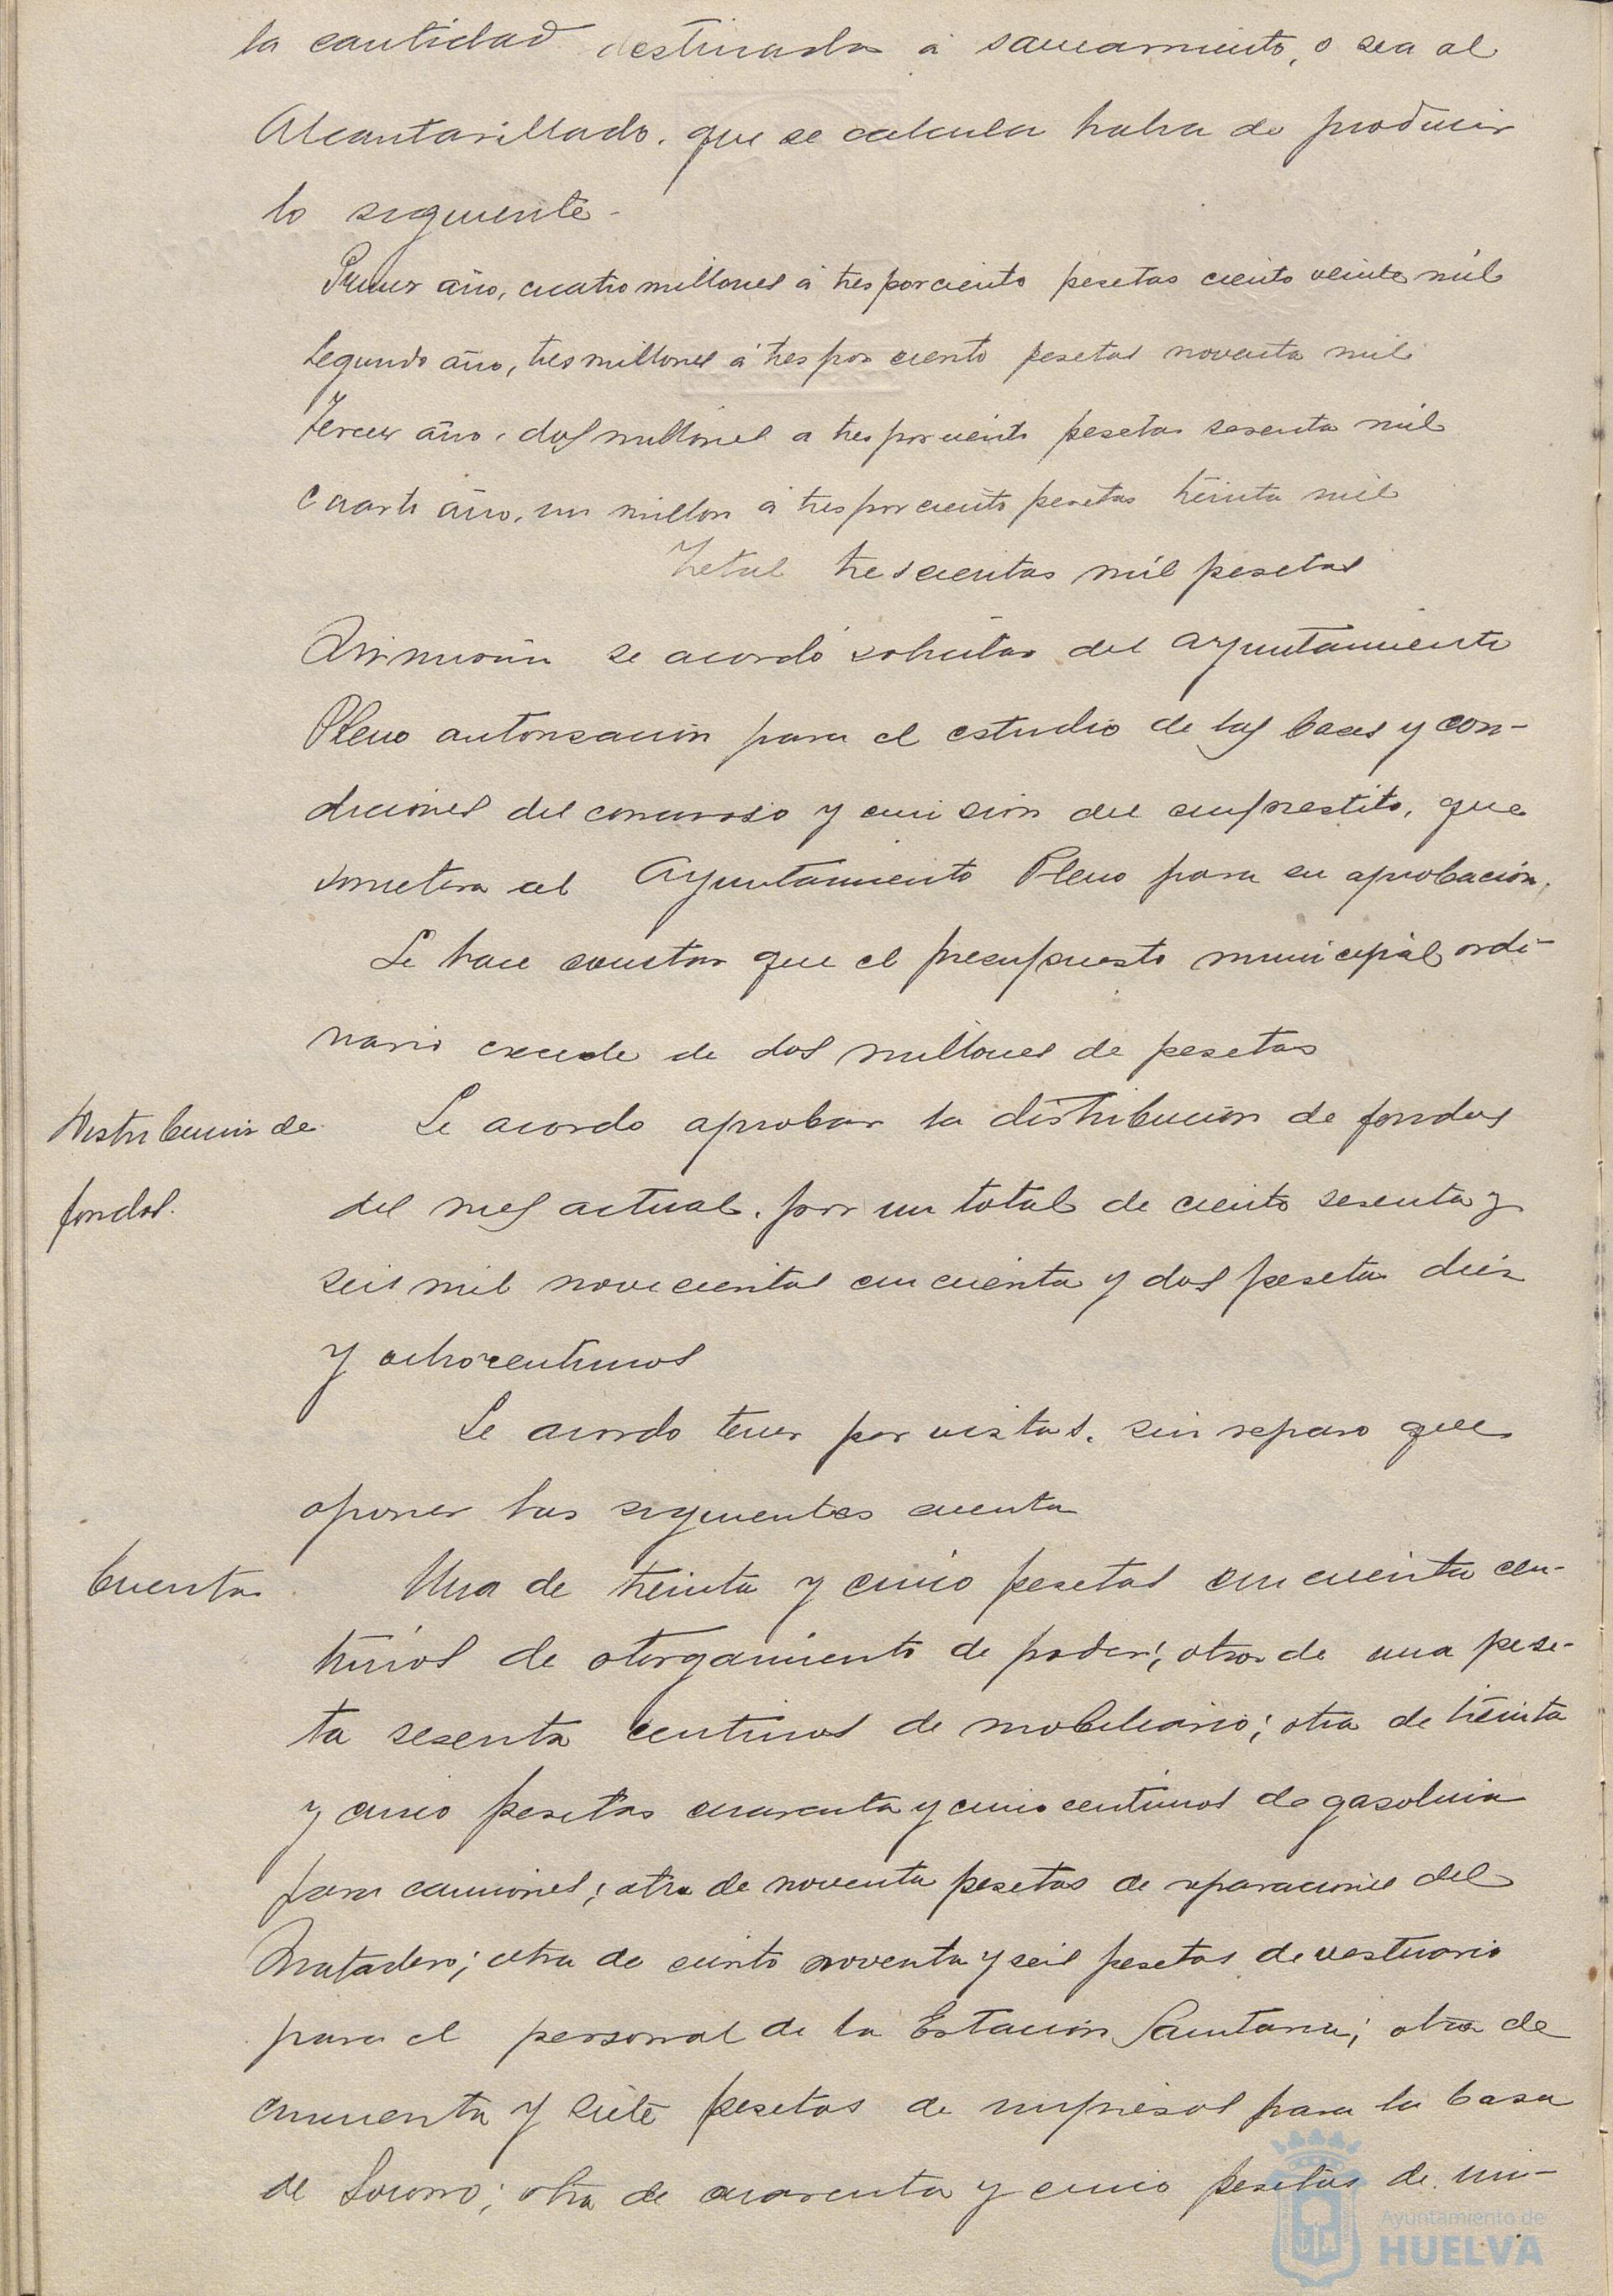 la cantidad destinada a saneamiento, o sea al
Alcantarillado, que se calcula habra de producir
lo siguiente-
Primer año, cuatro millones á tres por ciento pesetas ciento veinte mil
Segundo año, tres millones á tres por ciento pesetas noventa mil
Tercer año, dos millones a tres por ciento pesetas sesenta mil
Cuarto año, un millon á tres por ciento pesetas treinta mil
Total trescientas mil pesetas
Asimismo se acordó solicitar del Ayuntamiento
Pleno autorizacion para el estudio de las bases y con-
diciones del concurso y emision del emprestito, que
sometera al Ayuntamiento Pleno para su aprobación.
Se hace constar que el presupuesto municipal ordi-
nario excede de dos millones de pesetas
Distribucion de
fondos.
Se acordo aprobar la distribucion de fondos
del mes actual, por un total de ciento sesenta y
seis mil novecientas cincuenta y dos peseta diez
y ocho centimos
Se acordo tener por vistas, sin reparo que
oponer las siguientes cuenta
Cuentas
Una de treinta y cinco pesetas cincuenta cen-
timos de otorgamiento de poder; otra de una pese-
ta sesenta centimos de mobiliario; otra de treinta
y cinco pesetas cuarenta y cinco centimos de gasolina
para camiones; otra de noventa pesetas de reparaciones del
Matadero; otra de ciento noventa y seis pesetas de vestuario
para el personal de la Estacion Sanitaria; otra de
cincuenta y siete pesetas de impresos para la Casa
de Socorro; otra de cuarenta y cinco pesetas de im-
Ayuntamiento de
HUELVA